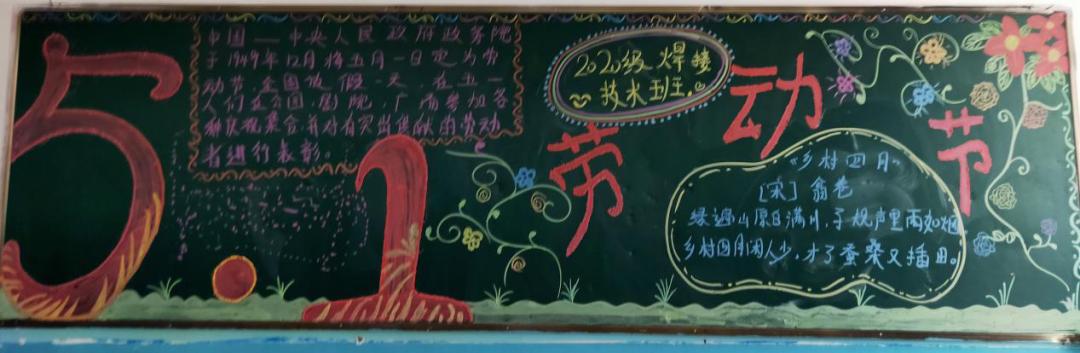 5.1
中国——中央人民政府政务院
于1949年12月将五月一日定为劳
动节,全国放假一天,在五一
人们在公园,剧院,广场参加各
种庆祝集会,并对有突出贡献的劳动
者进行表彰。
2020级焊接
技术班
劳动节
《乡村四月》
[宋]翁卷
绿遍山原白满川,子规声里雨如烟
乡村四月闲人少,才了蚕桑又插田。